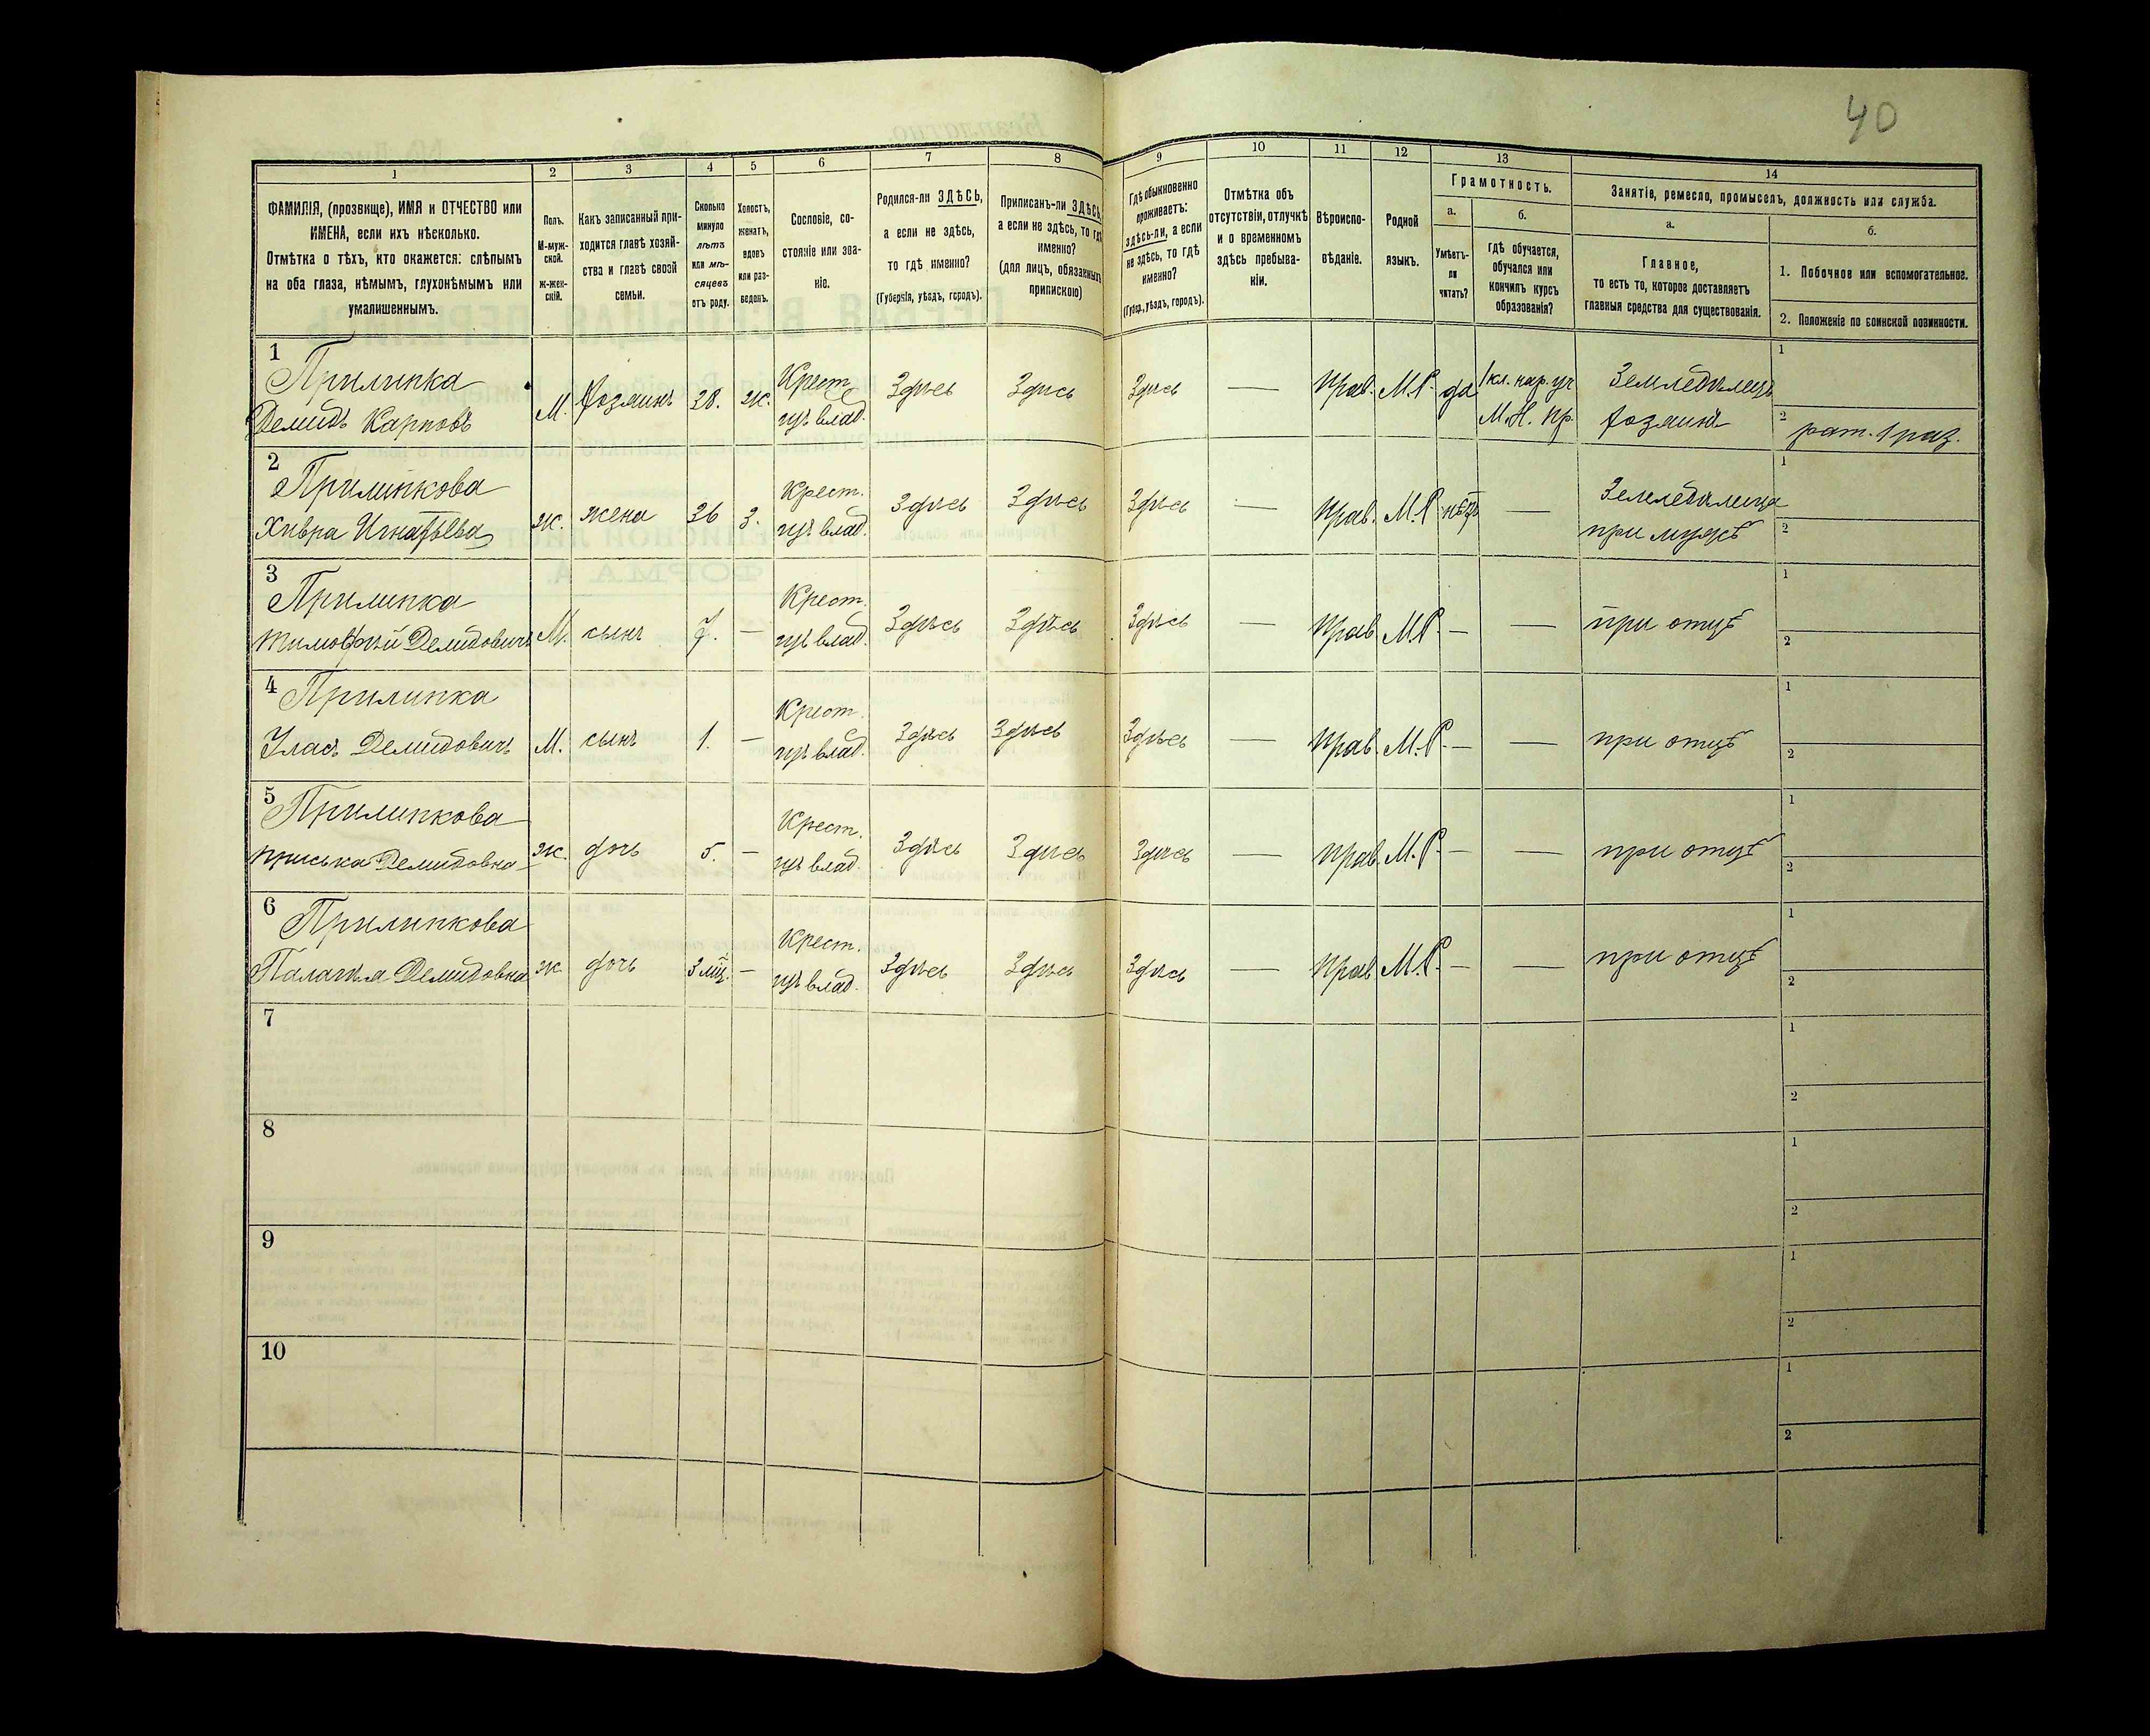 40
1
2
3
4
5
6
7
8
9
10
11
12
13
14
ФАМИЛІЯ, (прозвище), ИМЯ и ОТЧЕСТВО или
ИМЕНА, если ихъ нѣсколько.
Отмѣтка о тѣхъ, кто окажется: слѣпымъ
на оба глаза, нѣмымъ, глухонѣмымъ или
умалишеннымъ.
Полъ.
М-муж-
ской.
ж-жен-
скій.
Какъ записанный при-
ходится главѣ хозяй-
ства и главѣ своей
семьи.
Сколько
минуло
лѣтъ
или мѣ-
сяцевъ
отъ роду.
Холостъ,
женатъ,
вдовъ
или раз-
веденъ.
Сословіе, со-
стояніе или зва-
ніе.
Родился-ли ЗДѢСЬ,
а если не здѣсь,
то гдѣ именно?
(Губернія, уѣздъ, городъ).
Приписанъ-ли ЗДѢСЬ,
а если не здѣсь, то гдѣ
именно?
(для лицъ, обязанныхъ
припискою)
Гдѣ обыкновенно
проживаетъ:
здѣсь-ли, а если
не здѣсь, то гдѣ
именно?
(Губер., уѣздъ, городъ).
Отмѣтка объ
отсутствіи, отлучкѣ
и о временномъ
здѣсь пребыва-
ніи.
Вѣроиспо-
вѣданіе.
Родной
языкъ.
Грамотность.
а.
Умѣетъ-
ли
читать?
б.
гдѣ обучается,
обучался или
кончилъ курсъ
образованія?
Занятіе, ремесло, промыселъ, должность или служба.
а.
Главное,
то есть то, которое доставляетъ
главныя средства для существованія.
б.
1. Побочное или вспомогательное.
2. Положеніе по воинской повинности.
1
Прилипка
Демидъ Карповъ
М.
Хозяинъ
38.
ж.
Крест.
изъ влад.
Здѣсь
Здѣсь
Здѣсь
—
Прав.
М.Р.
да
1 кл. нар. уч
М. Н. Пр.
Земледѣлецъ
хозяинъ
1
2
рат. 1 раз.
2
Прилипкова
Хивря Игнатьева
ж.
жена
36
З.
Крест.
изъ влад.
Здѣсь
Здѣсь
Здѣсь
—
Прав.
М.Р.
нѣтъ
—
Земледѣлица
при мужѣ
1
2
3
Прилипка
Тимофѣй Демидовичъ
М.
сынъ
7.
—
Крест.
изъ влад.
Здѣсь
Здѣсь
Здѣсь
—
Прав.
М.Р.
—
—
при отцѣ
1
2
4
Прилипка
Уласъ Демидовичъ
М.
сынъ
1.
—
Крест.
изъ влад.
Здѣсь
Здѣсь
Здѣсь
—
Прав.
М.Р.
—
—
при отцѣ
1
2
5
Прилипкова
Приська Демидовна
ж.
дочь
5.
—
Крест.
изъ влад.
Здѣсь
Здѣсь
Здѣсь
—
Прав.
М.Р.
—
—
при отцѣ
1
2
6
Прилипкова
Палагѣя Демидовна
ж.
дочь
3 мѣц.
—
Крест.
изъ влад.
Здѣсь
Здѣсь
Здѣсь
—
Прав.
М.Р.
—
—
при отцѣ
1
2
7
1
2
8
1
2
9
1
2
10
1
2